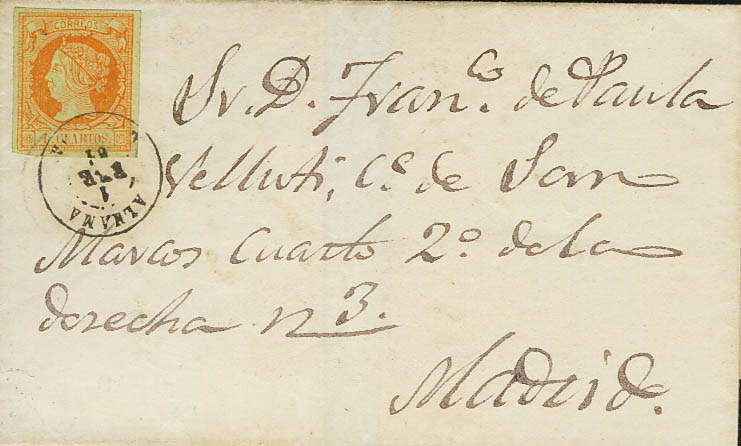 CORREOS
4 CUARTOS.
ALHAMA
1
ENE
61
Sr. D. Franco. de Paula
Velluti, Ce. de San
Marcos Cuarto 2º. de la
derecha n 3.
Madrid.